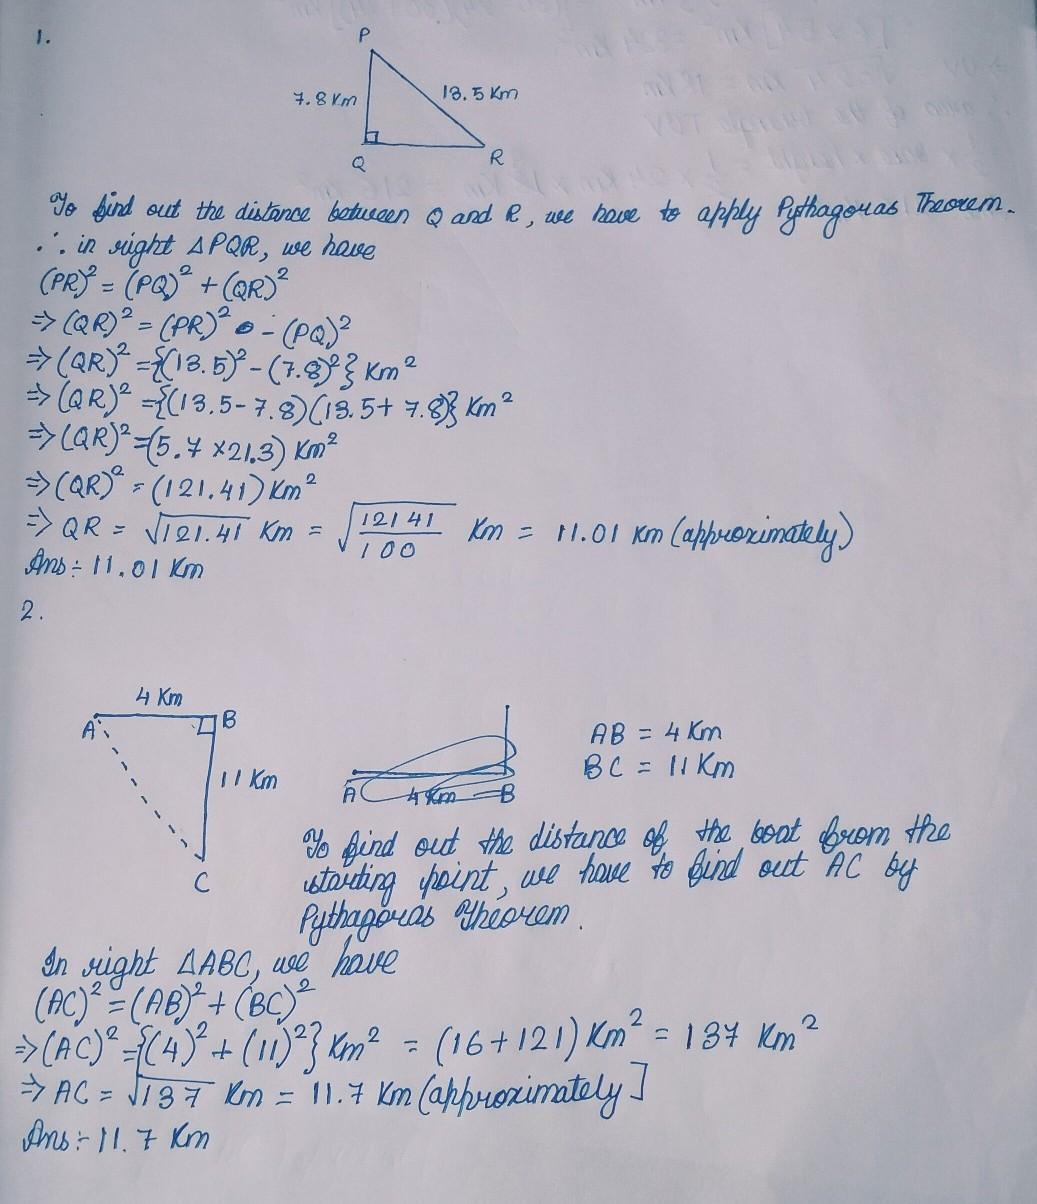 1.
P
7.8 Km
13.5 Km
Q
R
To find out the distance between Q and R, we have to apply Pythagoras Theorem.
∴ in right △PQR, we have
(PR)² = (PQ)² + (QR)²
⇒ (QR)² = (PR)² - (PQ)²
⇒ (QR)² = {(13.5)² - (7.8)²} Km²
⇒ (QR)² = {(13.5 - 7.8)(13.5 + 7.8)} Km²
⇒ (QR)² = (5.7 × 21.3) Km²
⇒ (QR)² = (121.41) Km²
⇒ QR = √121.41 Km = √(12141/100) Km = 11.01 Km (approximately)
Ans :- 11.01 Km
2.
4 Km
A
B
11 Km
C
A
4 Km
B
AB = 4 Km
BC = 11 Km
To find out the distance of the boat from the
starting point, we have to find out AC by
Pythagoras Theorem.
In right △ABC, we have
(AC)² = (AB)² + (BC)²
⇒ (AC)² = {(4)² + (11)²} Km² = (16 + 121) Km² = 137 Km²
⇒ AC = √137 Km = 11.7 Km (approximately]
Ans :- 11.7 Km